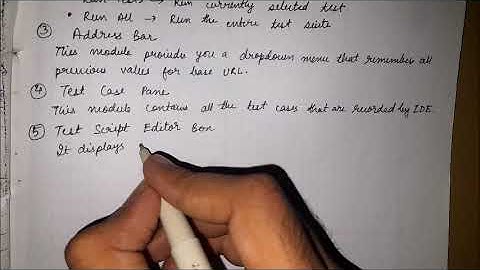 Run currently selected test
• Run All → Run the entire test suite
③ Address Bar
This module provide you a dropdown menu that remembers all
previous values for base URL.
④ Test Case Pane
This module contains all the test cases that are recorded by IDE.
⑤ Test Script Editor Box
It displays